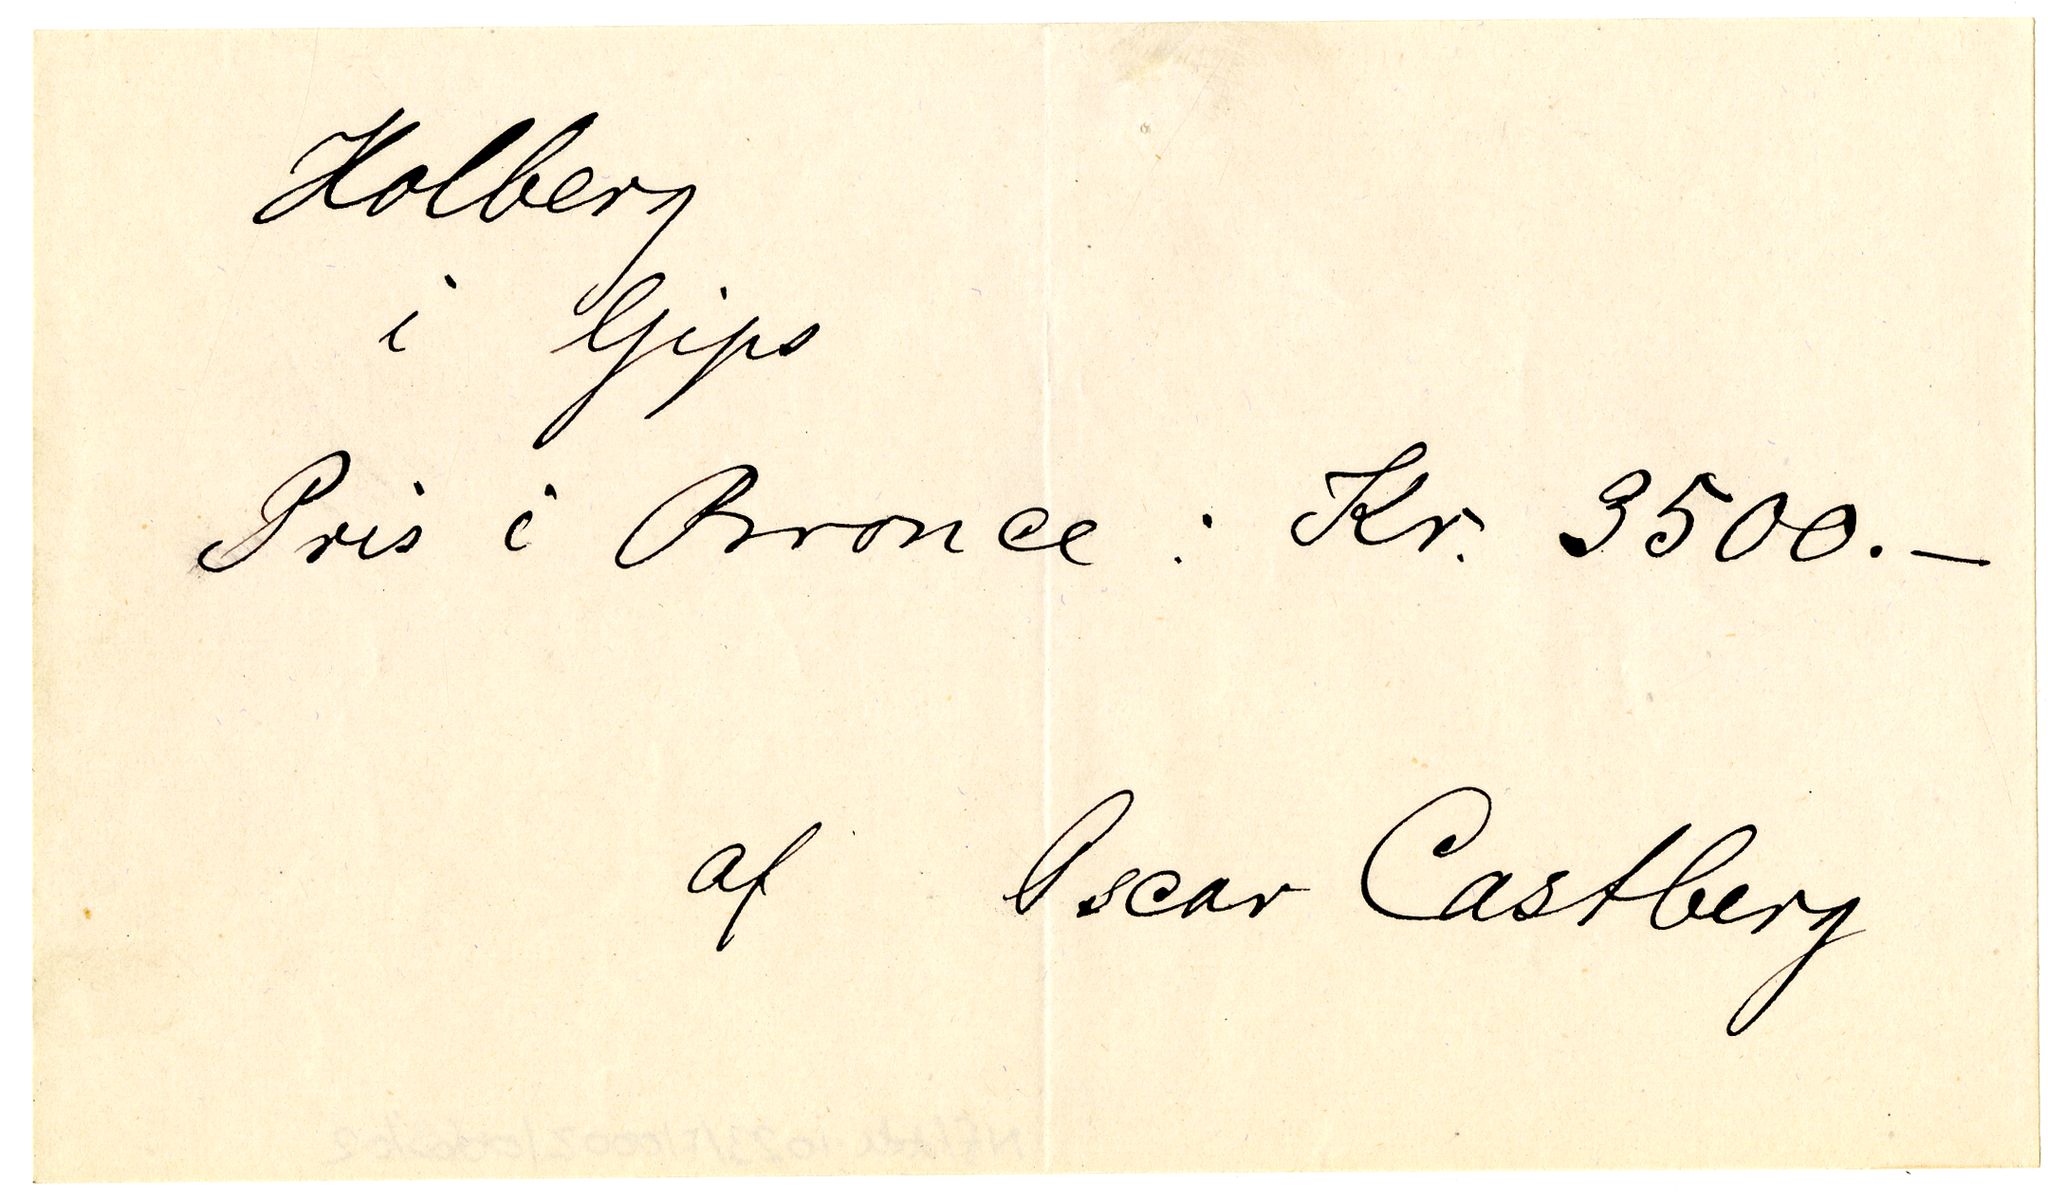 Holberg
i Gips
Pris i Bronce : Kr. 3500.—
af Oscar Castberg